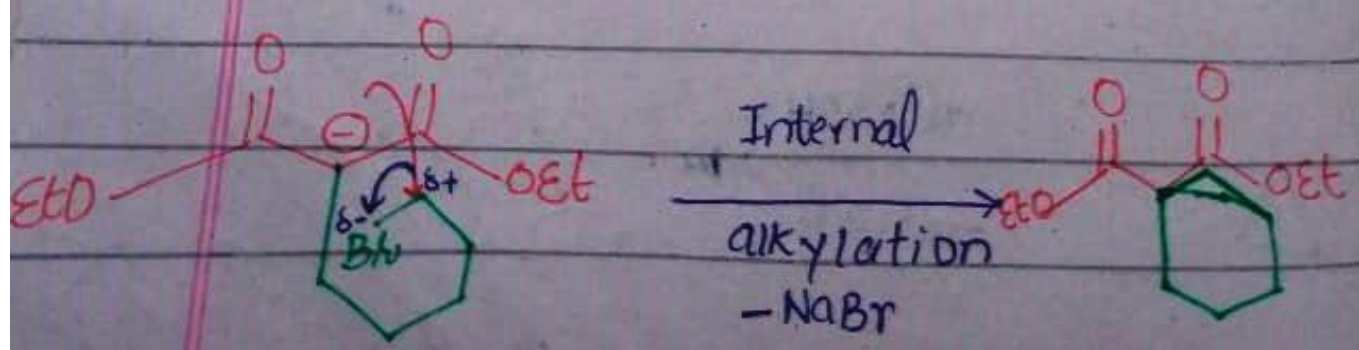 O O O O
EtO ⊖ OEt
δ- δ+
Br
Internal
alkylation
-NaBr
EtO OEt